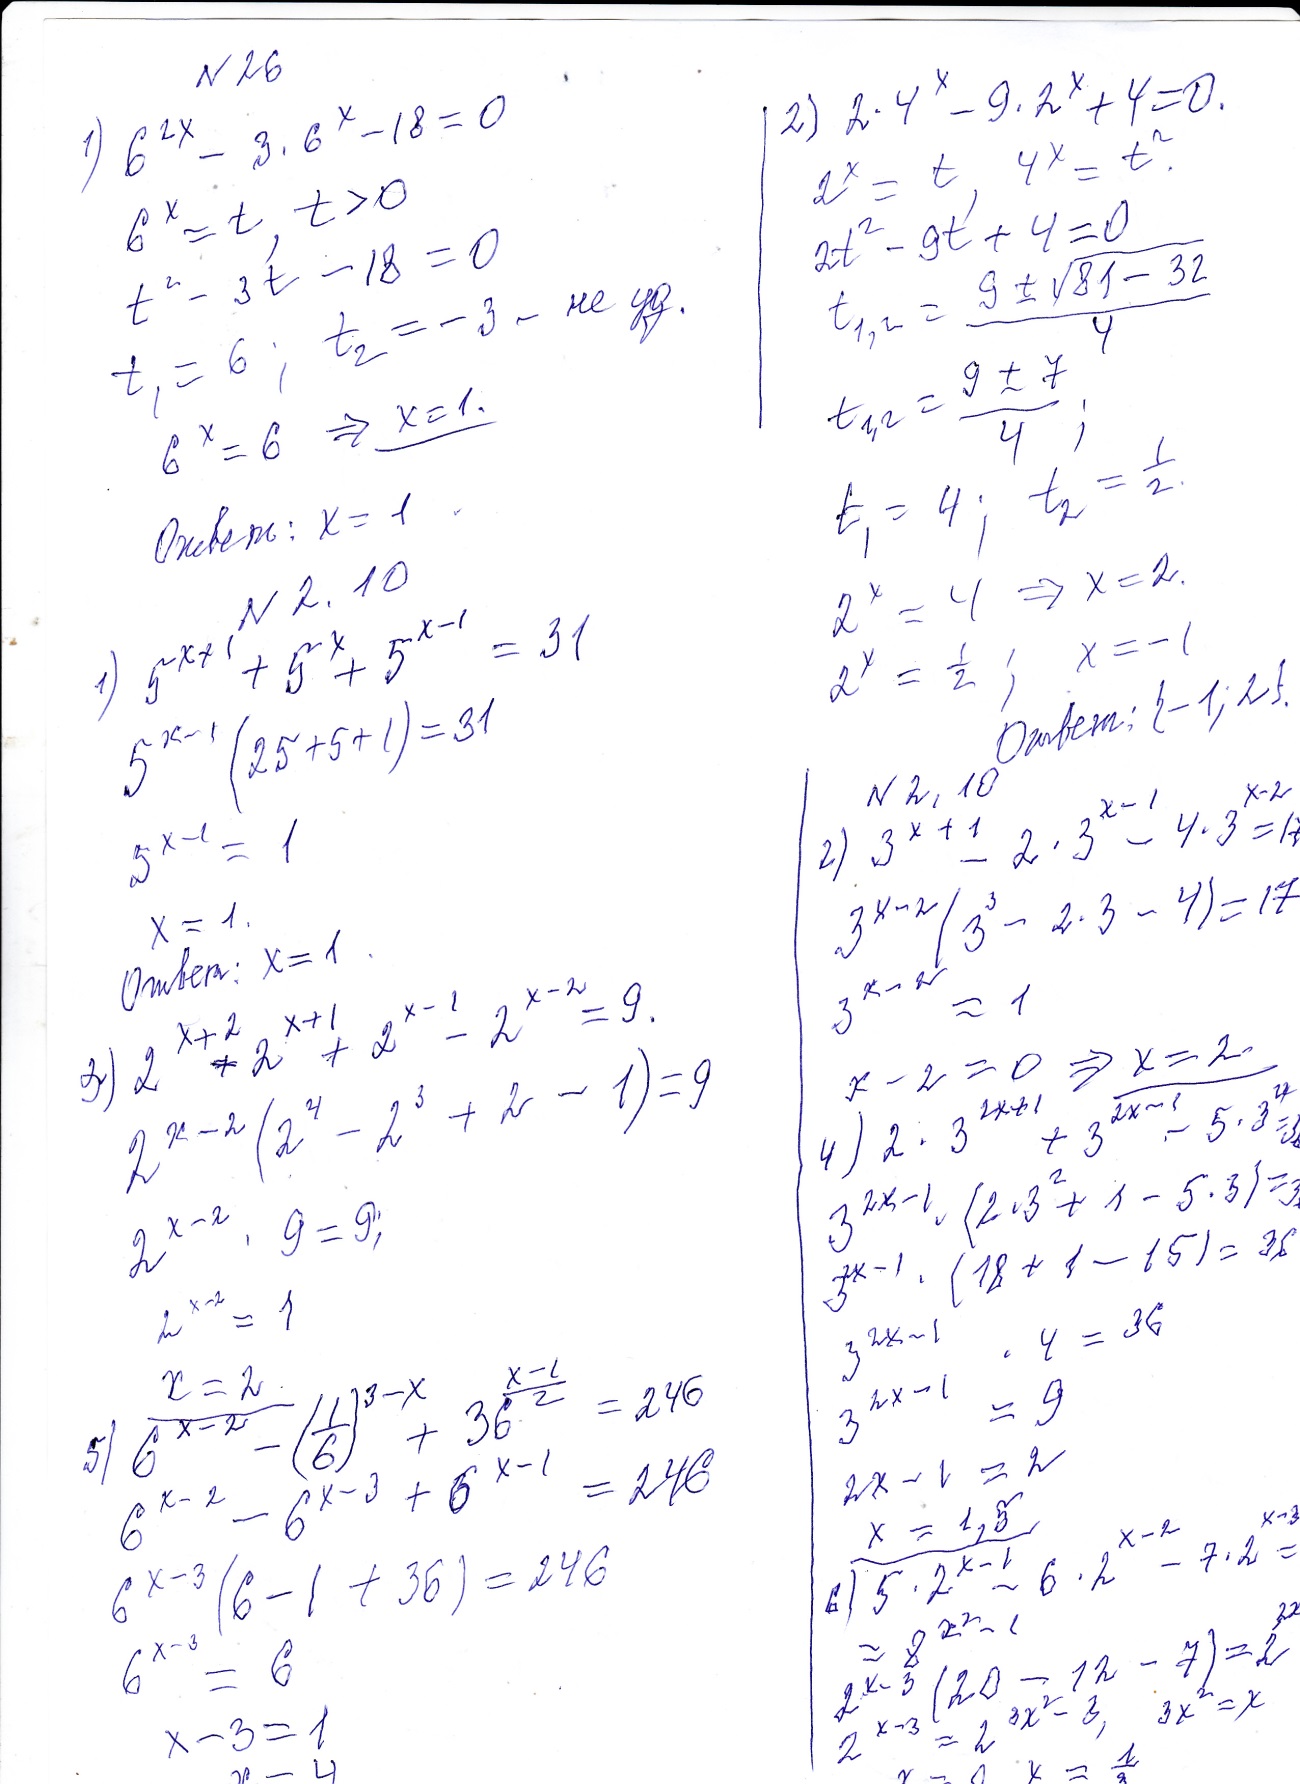 N 26
1) 6^{2x} - 3·6^x - 18 = 0
6^x = t, t > 0
t² - 3t - 18 = 0
t₁ = 6; t₂ = -3 - не уд.
6^x = 6 ⇒ x = 1.
Ответ: x = 1.
N 2.10
1) 5^{x+1} + 5^x + 5^{x-1} = 31
5^{x-1}(25+5+1) = 31
5^{x-1} = 1
x = 1.
Ответ: x = 1.
3) 2^{x+2} - 2^{x+1} + 2^{x-1} - 2^{x-2} = 9.
2^{x-2}(2⁴ - 2³ + 2 - 1) = 9
2^{x-2} · 9 = 9;
2^{x-2} = 1
x = 2.
5) 6^{x-2} - (1/6)^{3-x} + 36^{(x-1)/2} = 246
6^{x-2} - 6^{x-3} + 6^{x-1} = 246
6^{x-3}(6 - 1 + 36) = 246
6^{x-3} = 6
x - 3 = 1
x = 4
2) 2·4^x - 9·2^x + 4 = 0.
2^x = t, 4^x = t².
2t² - 9t + 4 = 0
t_{1,2} = (9 ± √(81 - 32))/4
t_{1,2} = (9 ± 7)/4;
t₁ = 4; t₂ = 1/2.
2^x = 4 ⇒ x = 2.
2^x = 1/2; x = -1
Ответ: {-1; 2}.
N 2.10
2) 3^{x+1} - 2·3^{x-1} - 4·3^{x-2} = 17
3^{x-2}(3³ - 2·3 - 4) = 17
3^{x-2} = 1
x - 2 = 0 ⇒ x = 2.
4) 2·3^{2x+1} + 3^{2x-1} - 5·3^{2x} = 3
3^{2x-1}·(2·3² + 1 - 5·3) = 3
3^{2x-1}·(18 + 1 - 15) = 36
3^{2x-1} · 4 = 36
3^{2x-1} = 9
2x - 1 = 2
x = 1,5
6) 5·2^{x-1} - 6·2^{x-2} - 7·2^{x-3} =
= 8^{x²-1}
2^{x-3}(20 - 12 - 7) = 2^{3x}
2^{x-3} = 2^{3x²-3}, 3x² = x
x = 0 x = 1/3